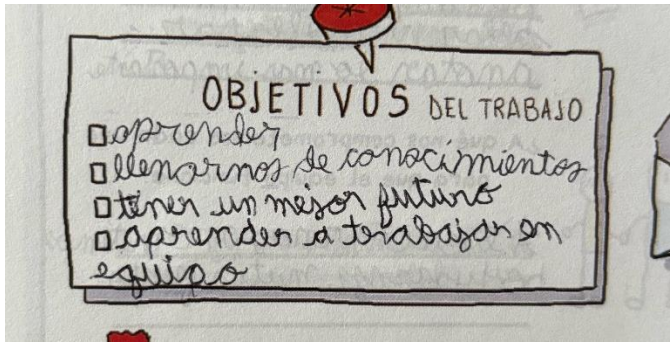 OBJETIVOS DEL TRABAJO
aprender
llenarnos de conocimientos
tener un mejor futuro
aprender a trabajar en
equipo